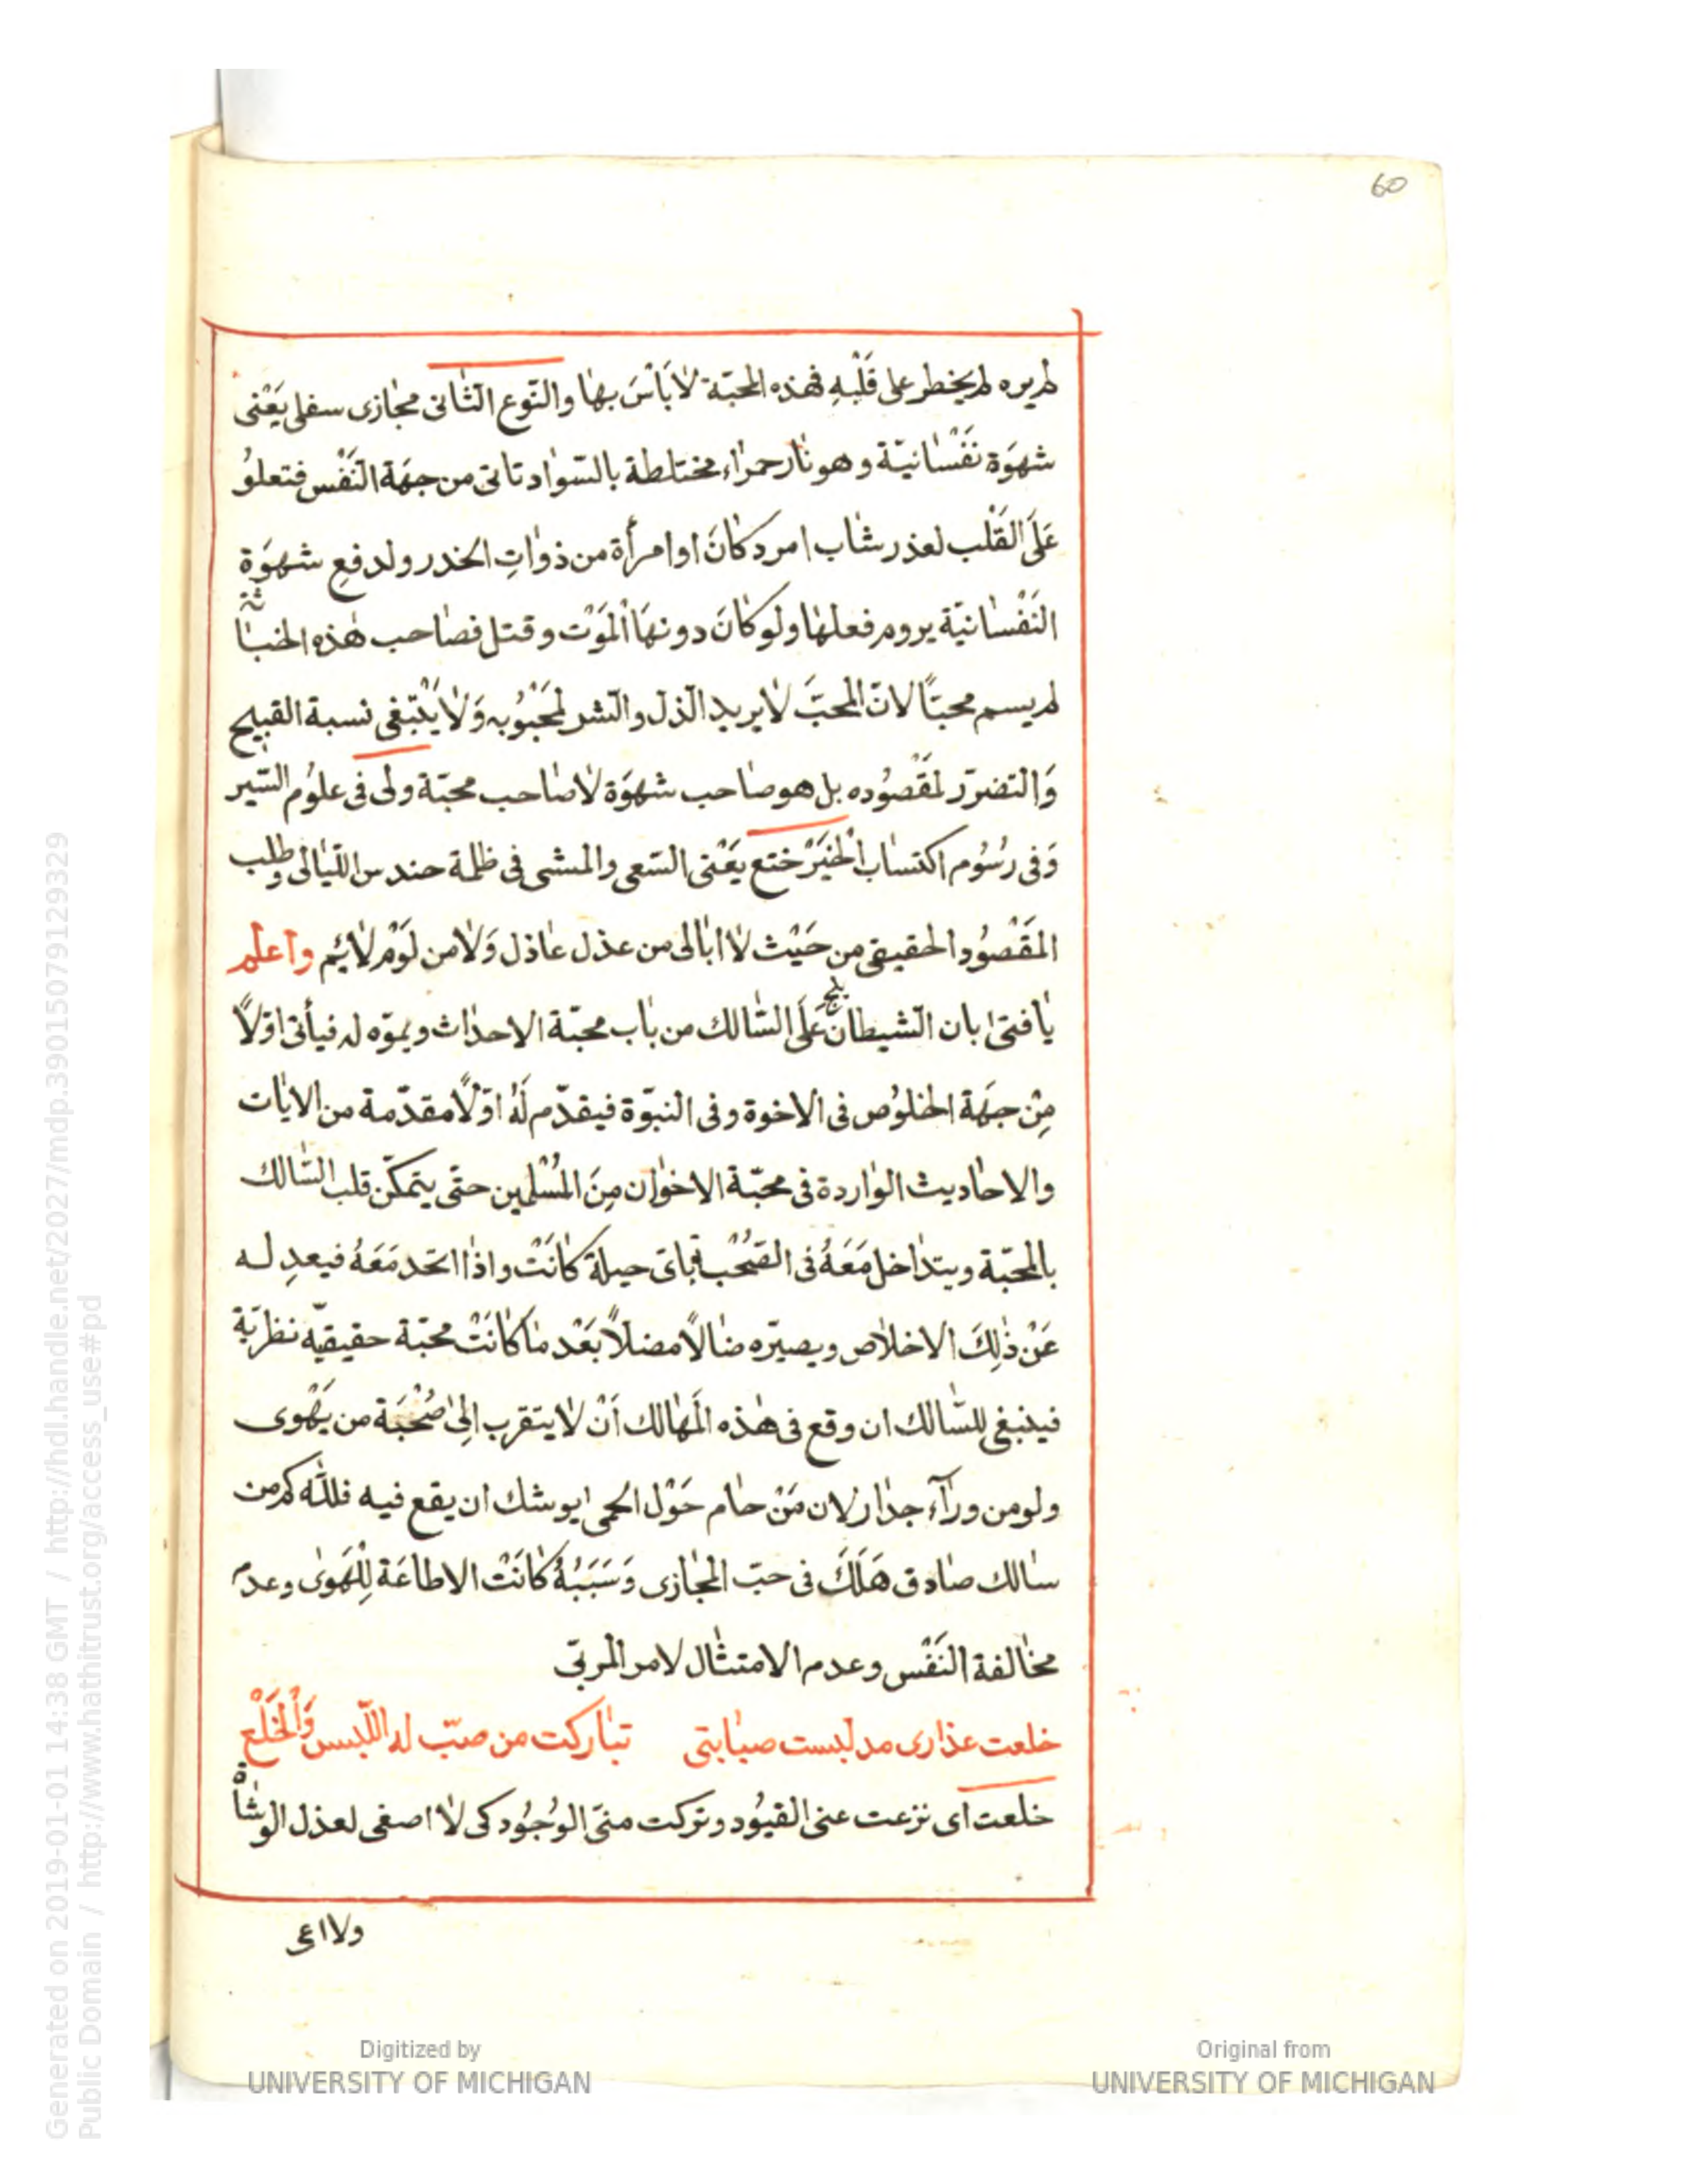 60
لم يره لم يخطر على قَلْبِه فهذه المحبّة لاٰ بَأْسَ بهٰا والنّوع الثّانى مجٰازى سفلى يَعْنى
شهوَة نَفْسٰانيّة وهو نٰار حمرٰاء مختلطة بالسّوٰاد تاتى من جهَة النّفْس فتعلوُ
عَلَى القَلْب لعذر شٰاب امرد كٰانَ او امرأة من ذوٰاتِ الخدر ولدفعِ شهوَة
النَفْسٰانيّة يروم فعلهٰا ولو كٰانَ دونهَا الْمَوْت وقتل فصٰاحب هٰذه الخبٰاثة
لم يسم محبّاً لانّ المحبَّ لاٰ يريد الذّل والشر لمَحْبُوبه وَلاٰ يَبْتَغى نسبة القبيح
وَالتضرّر لمَقْصُوده بل هو صٰاحب شهوَة لاٰ صٰاحب محبّة ولى فى علوُم السّير
وَفى رسُوُم اكتسٰاب الْخَيَرْ ختع يَعْنى السّعى والمشى فى ظلمة حندس اللّيٰالى وطلب
المَقْصُود الحقيقى من حَيْث لاٰ ابٰالى من عذل عٰاذل وَلاٰ من لَوْم لاٰئم واعلم
يٰا فتى بان الشيطانَ يلج عَلَى السّٰالك من بٰاب محبّة الاحدٰاث ويموّه له فيأتى اوّلاً
مِنْ جهَة الخلوُص فى الاخوة وفى النبوّة فيقدّم لَهُ اوّلاً مقدّمة من الايٰات
والاحٰاديث الوٰاردة فى محبّة الاخوٰان مِنَ المُسْلمين حتّى يتمكّن قلب السّٰالك
بالمحبّة ويتدٰاخل مَعَهُ فى الصّحْبة باىّ حيلة كٰانَتْ واذٰا اتحد مَعَهُ فيعدِل به
عَنْ ذٰلِكَ الاخلاٰص ويصيّره ضٰالاً مضلاً بَعْد مٰا كٰانَتْ محبّة حقيقيّة نظريّة
فينبغى للسّٰالك ان وقع فى هٰذه المَهٰالك اَنْ لاٰ يتقرب اِلىٰ صُحْبَة من يَهْوى
ولو من ورآء جدٰار لان مَنْ حٰام حَوْل الحمى يوشك ان يقع فيه فللّٰه كم من
سٰالك صٰادق هَلَكَ فى حبّ المجٰازى وَسَبَبُهُ كٰانَتْ الاطاعَة لِلْهَوىٰ وعدم
مخٰالفة النَفْس وعدم الامتثٰال لامر المربّى
خلعت عذارى مد لبست صبٰابتى تبٰاركت من صبّ له اللّبس وَالْخَلْع
خلعت اى نزعت عنى القيُود وتركت منىّ الوُجُود كى لاٰ اصغى لعذل الوشٰاة
ولا اعى
Digitized by
UNIVERSITY OF MICHIGAN
Original from
UNIVERSITY OF MICHIGAN
Generated on 2019-01-01 14:38 GMT / http://hdl.handle.net/2027/mdp.39015079129329
Public Domain / http://www.hathitrust.org/access_use#pd